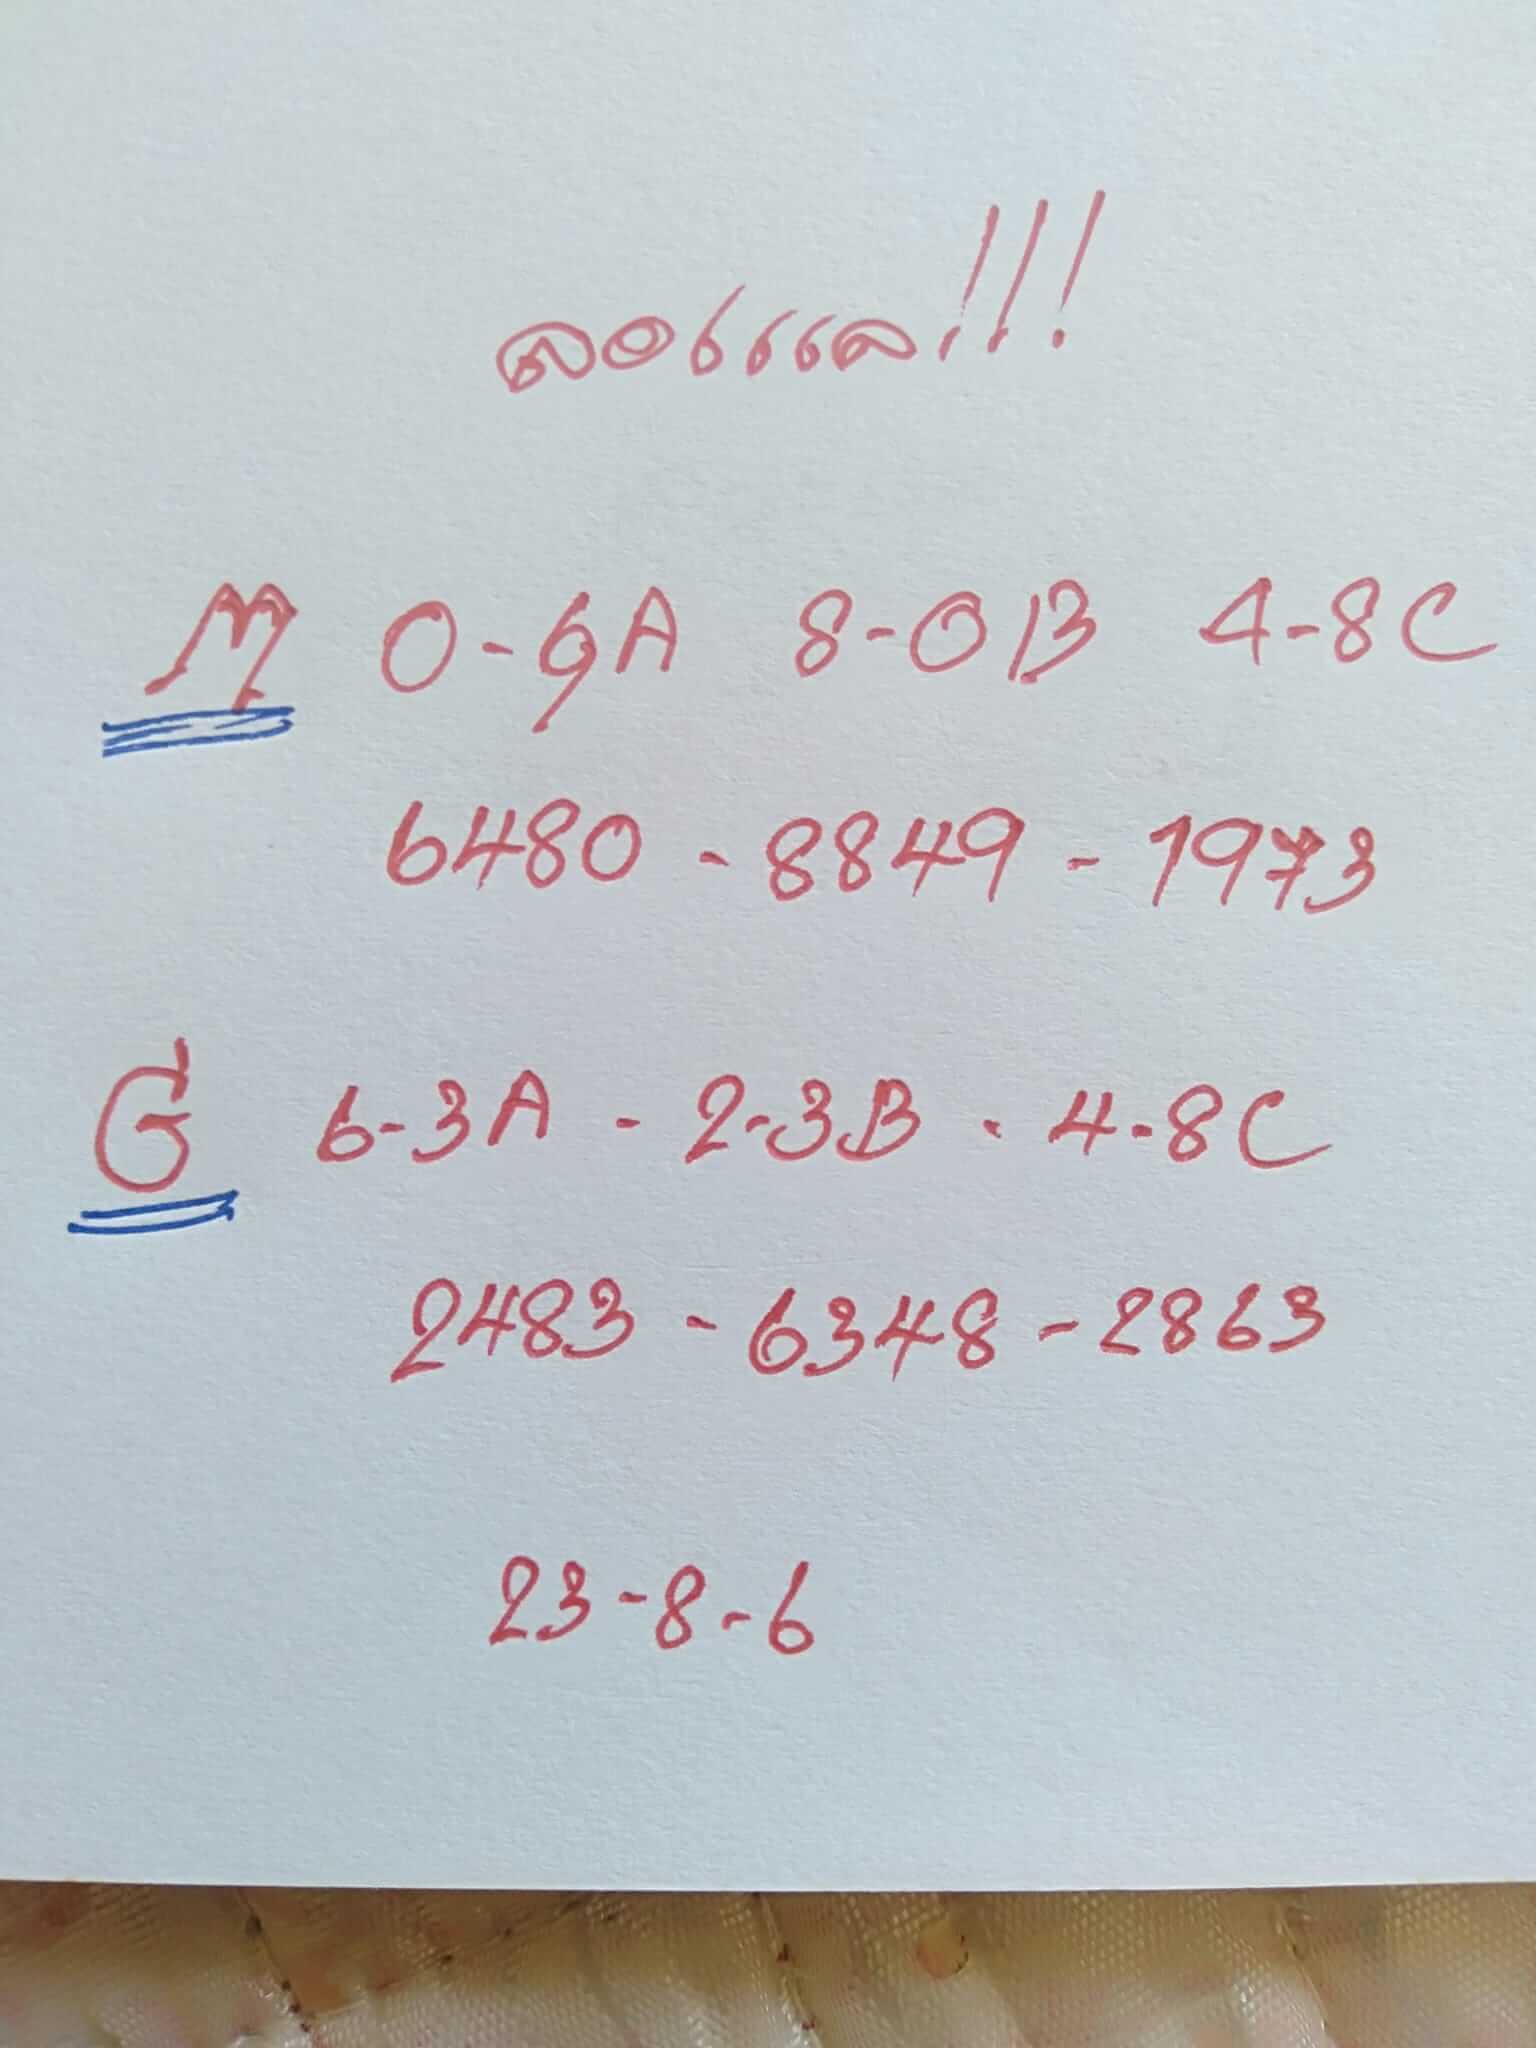 ลอตเตล!!!
M 0-9A 8-0B 4-8C
6480 - 8849 - 1973
G 6-3A - 2-3B - 4-8C
2483 - 6348 - 2863
23-8-6